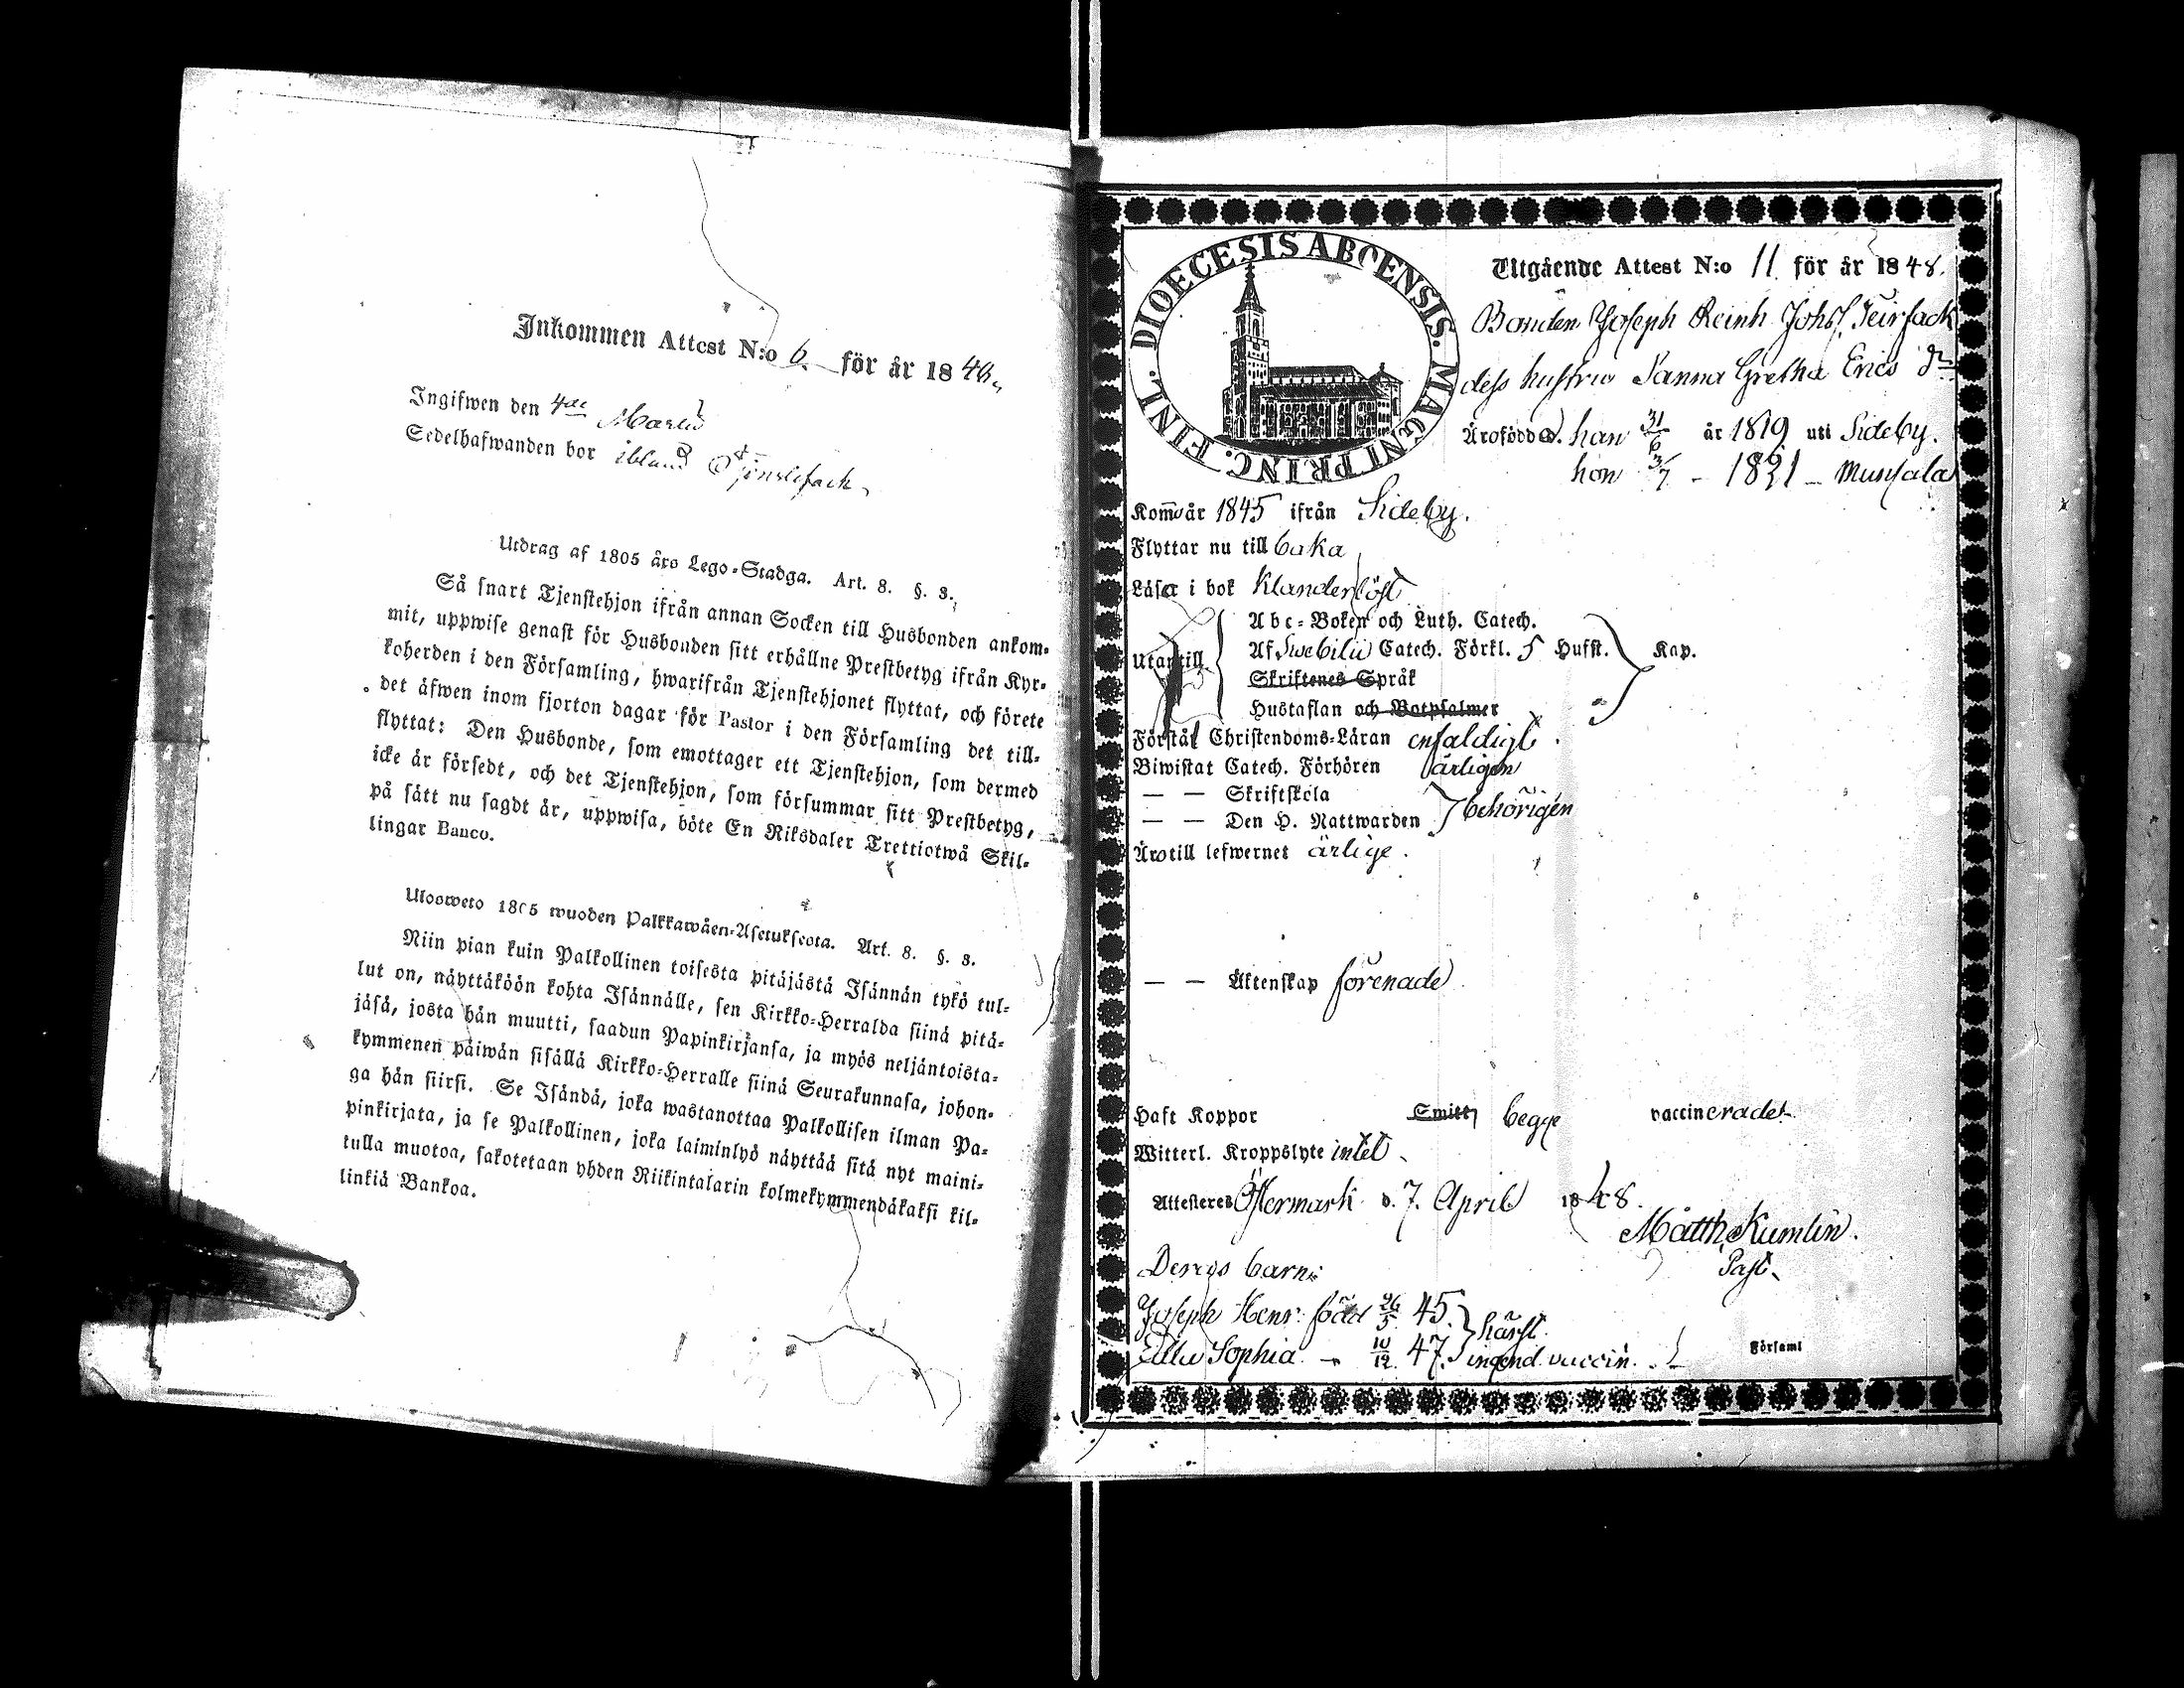 Inkommen Attest N:o 6. för år 1848.
Ingifwen den 4de
Sedelhafwanden bor ibland
Utdrag af 1805 års Lego-Stadga. Art. 8. §. 3.
Så snart Tjenstehjon ifrån annan Socken till Husbonden ankom-
mit, uppwise genast för Husbonden sitt erhållne Prestbetyg ifrån Kyr-
koherden i den Församling, hwarifrån Tjenstehjonet flyttat, och förete
det äfwen inom fjorton dagar för Pastor i den Församling det till-
flyttat: Den Husbonde, som emottager ett Tjenstehjon, som dermed
icke är försedt, och det Tjenstehjon, som försummar sitt Prestbetyg,
på sätt nu sagdt är, uppwisa, böte En Riksdaler Trettiotwå Skil-
lingar Banco.
Ulosweto 1805 wuoden Palkkawäen-Asetuksesta. Art. 8. §. 3.
Niin pian kuin Palkollinen toisesta pitäjästä Isännän tykö tul-
lut on, näyttäköön kohta Isännälle, sen Kirkko-Herralda siinä pitä-
jäsä, josta hän muutti, saadun Papinkirjansa, ja myös neljäntoista-
kymmenen päiwän sisällä Kirkko-Herralle siinä Seurakunnasa, johon-
ga hän siirsi. Se Isändä, joka wastanottaa Palkollisen ilman Pa-
pinkirjata, ja se Palkollinen, joka laiminlyö näyttää sitä nyt maini-
tulla muotoa, sakotetaan yhden Riikintalarin kolmekymmendäkaksi kil-
linkiä Bankoa.
DIOECESIS ABOENSIS. MAGNI PRINC. FINL.
Utgående Attest N:o 11 för år 1848.
Bonden Joseph Reinh. Johs.
dess hustru Sanna Gretha Erics dr
Äro födde. han 31/6 år 1819 uti Sideby.
hon 3/7 - 1821 - Munsala
Kom år 1845 ifrån Sideby.
Flyttar nu till baka
Läsa i bok Klanderlöst
Abc-Boken och Luth. Catech.
Utantill Af Swebilii Catech. Förkl. 5 Hufst. Kap.
Skriftenes Språk
Hustaflan och Botpsalmer
Förstå Christendoms-Läran enfaldigt.
Biwistat Catech. Förhören årligen
— — Skriftskola
— — Den H. Nattwarden behörigen
Äro till lefwernet ärlige.
— — Äktenskap förenade
Haft Koppor Smitt begge vaccinerade
Witterl. Kroppslyte intet
Attesteres Östermark d. 7. April 1848.
Matth. Kumlin.
Past.
Deras barn:
Joseph Henr. född 26/5 45.
Ulla Sophia - 10/12 47. vaccin.
Församl